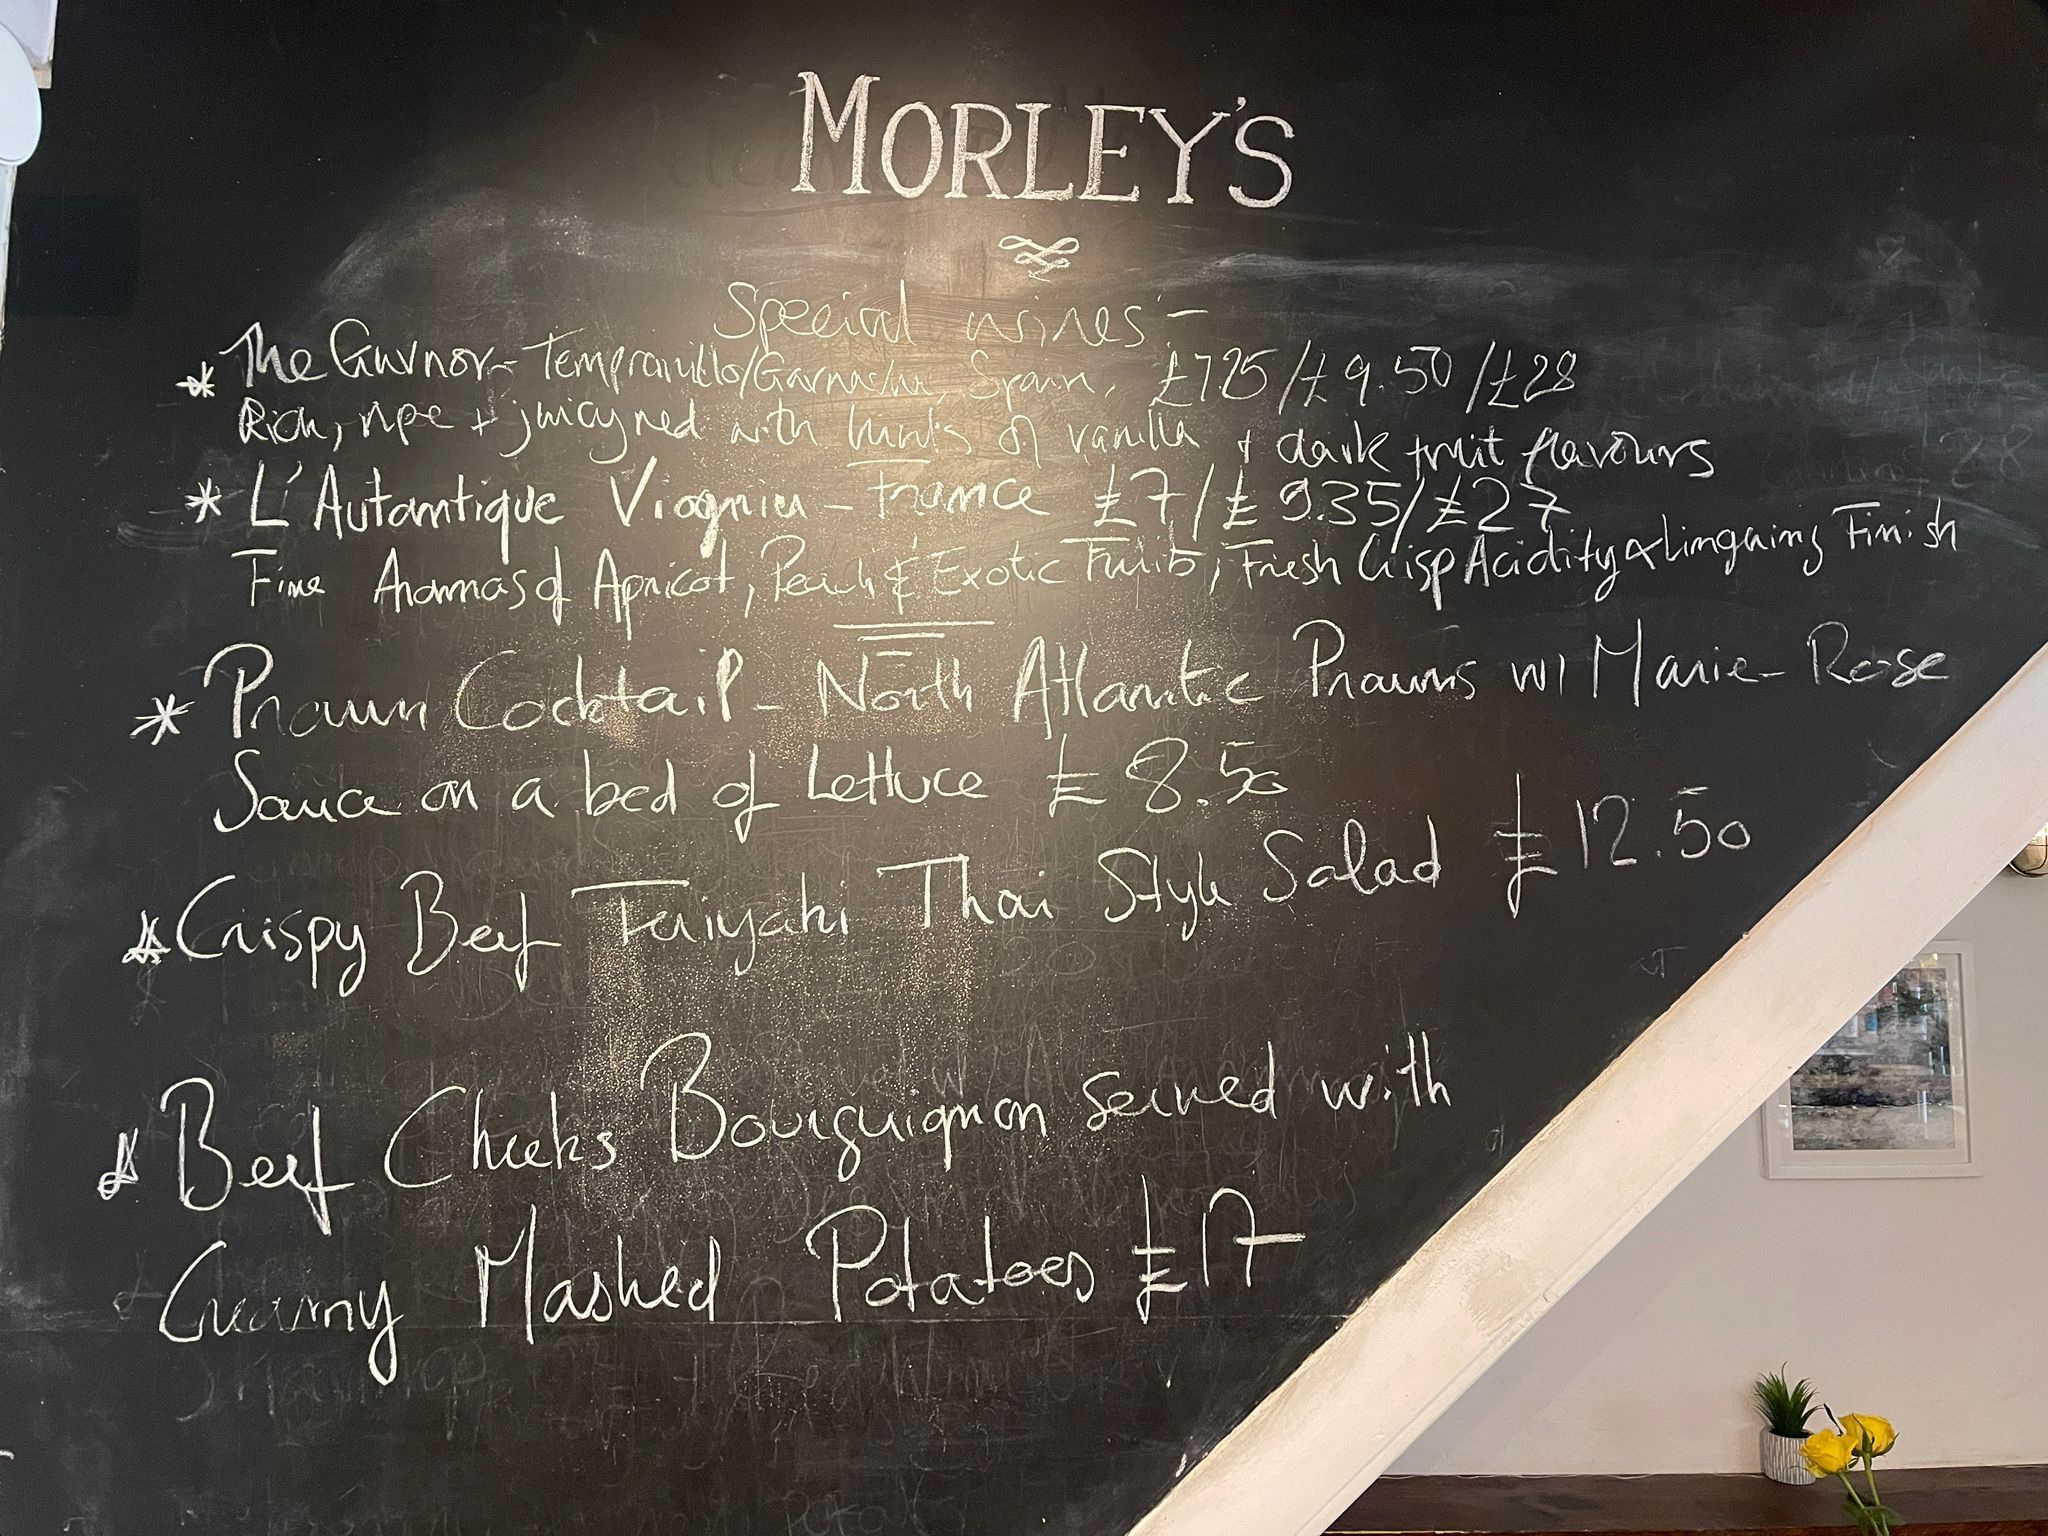 MORLEY'S
Special wines:-
* The Guvnor - Tempranillo/Garnacha, Spain, £7.25/£9.50/£28
Rich, ripe + juicy red with hints of vanilla + dark fruit flavours
* L'Autantique Viognier - France £7/£9.35/£27
Fine Aromas of Apricot, Peach & Exotic Fruits, Fresh Crisp Acidity & Linguing Finish
* Prawn Cocktail - North Atlantic Prawns w/ Marie-Rose
Sauce on a bed of Lettuce £8.50
* Crispy Beef Teriyaki Thai Style Salad £12.50
* Beef Cheeks Bourguignon served with
Creamy Mashed Potatoes £17